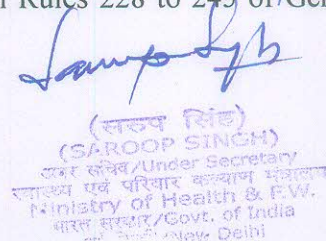 Rules 228 to 245 of Gen
(सरुप सिंह)
(SAROOP SINGH)
अवर सचिव/Under Secretary
स्वास्थ्य एवं परिवार कल्याण मंत्रालय
Ministry of Health & F.W.
भारत सरकार/Govt. of India
नई दिल्ली/New Delhi